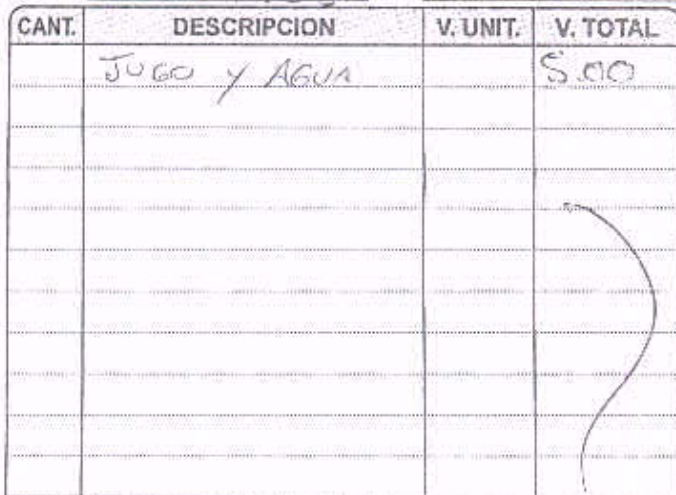 CANT. DESCRIPCION V. UNIT. V. TOTAL
JUGO Y AGUA 5.00